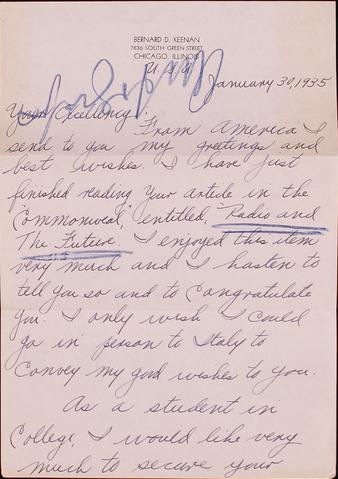 BERNARD D. KEENAN
7836 SOUTH GREEN STREET
CHICAGO, ILLINOIS
U.S.A.
January 30, 1935
Your Excellency:
From America I
send to you my greetings and
best wishes. I have just
finished reading Your article in the
Commonweal, entitled, "Radio and
The Future. I enjoyed this item
very much and I hasten to
tell you so and to Congratulate
you. I only wish I could
go in person to Italy to
Convey my good wishes to you.
As a student in
College, I would like very
much to secure your